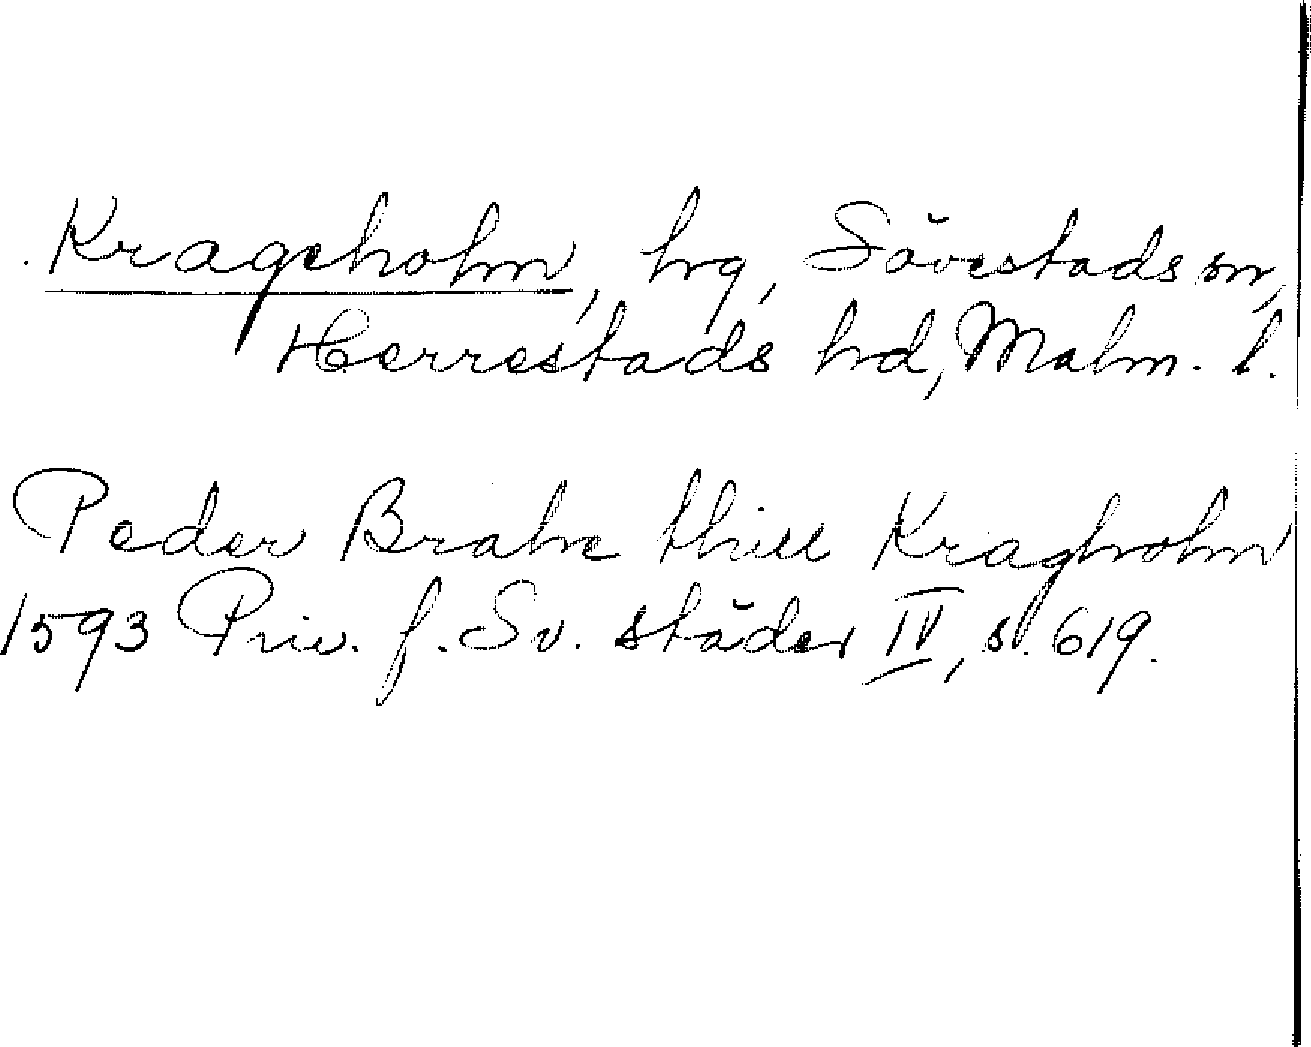 Krageholm, hrg, Sövestads sn,
Herrestads hd, Malm. l.
Peder Brahe thill Kragholm
1593 Priv. f. Sv. städer IV, s. 619.